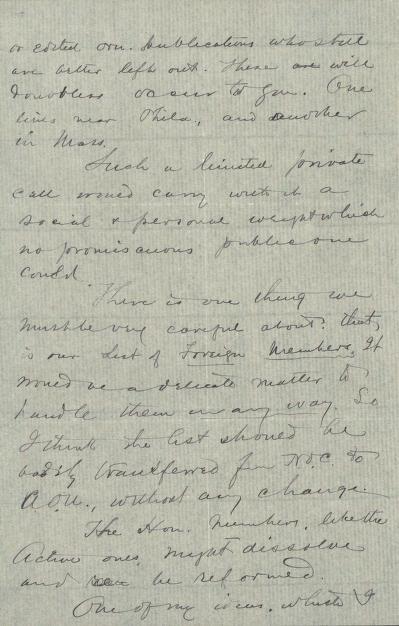 or edited orn. publications who still
are better left out. These are will
doubtless occur to you. One
lives near Phila., and another
in Mass.
Such a limited private
call would carry with it a
social & personal weight which
no promiscuous public one
could.
There is one thing we
must be very careful about: that
is our list of Foreign Members. It
would be a delicate matter to
handle them in any way. So
I think the list should be
bodily transferred from N.O.C. to
A.O.U., without any change.
The Hon. Members, like the
Active ones, might dissolve
and be reformed.
One of my ideas, which I